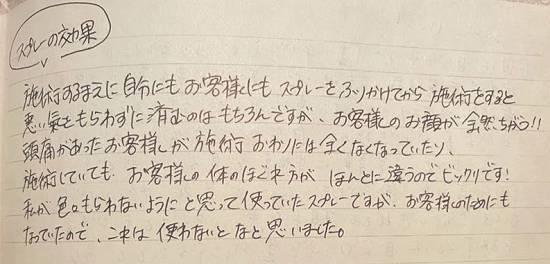 スプレーの効果
施術するまえに自分にもお客様にもスプレーをふりかけてから施術をすると
悪い気をもらわずに済むのはもちろんですが、お客様のお顔が全然ちがう!!
頭痛があったお客様が施術おわりには全くなくなっていたり、
施術していても、お客様の体のほぐれ方がほんとに違うのでビックリです!
私が色々もらわないようにと思って使っていたスプレーですが、お客様のためにも
なっていたので、これは使わないとなと思いました。